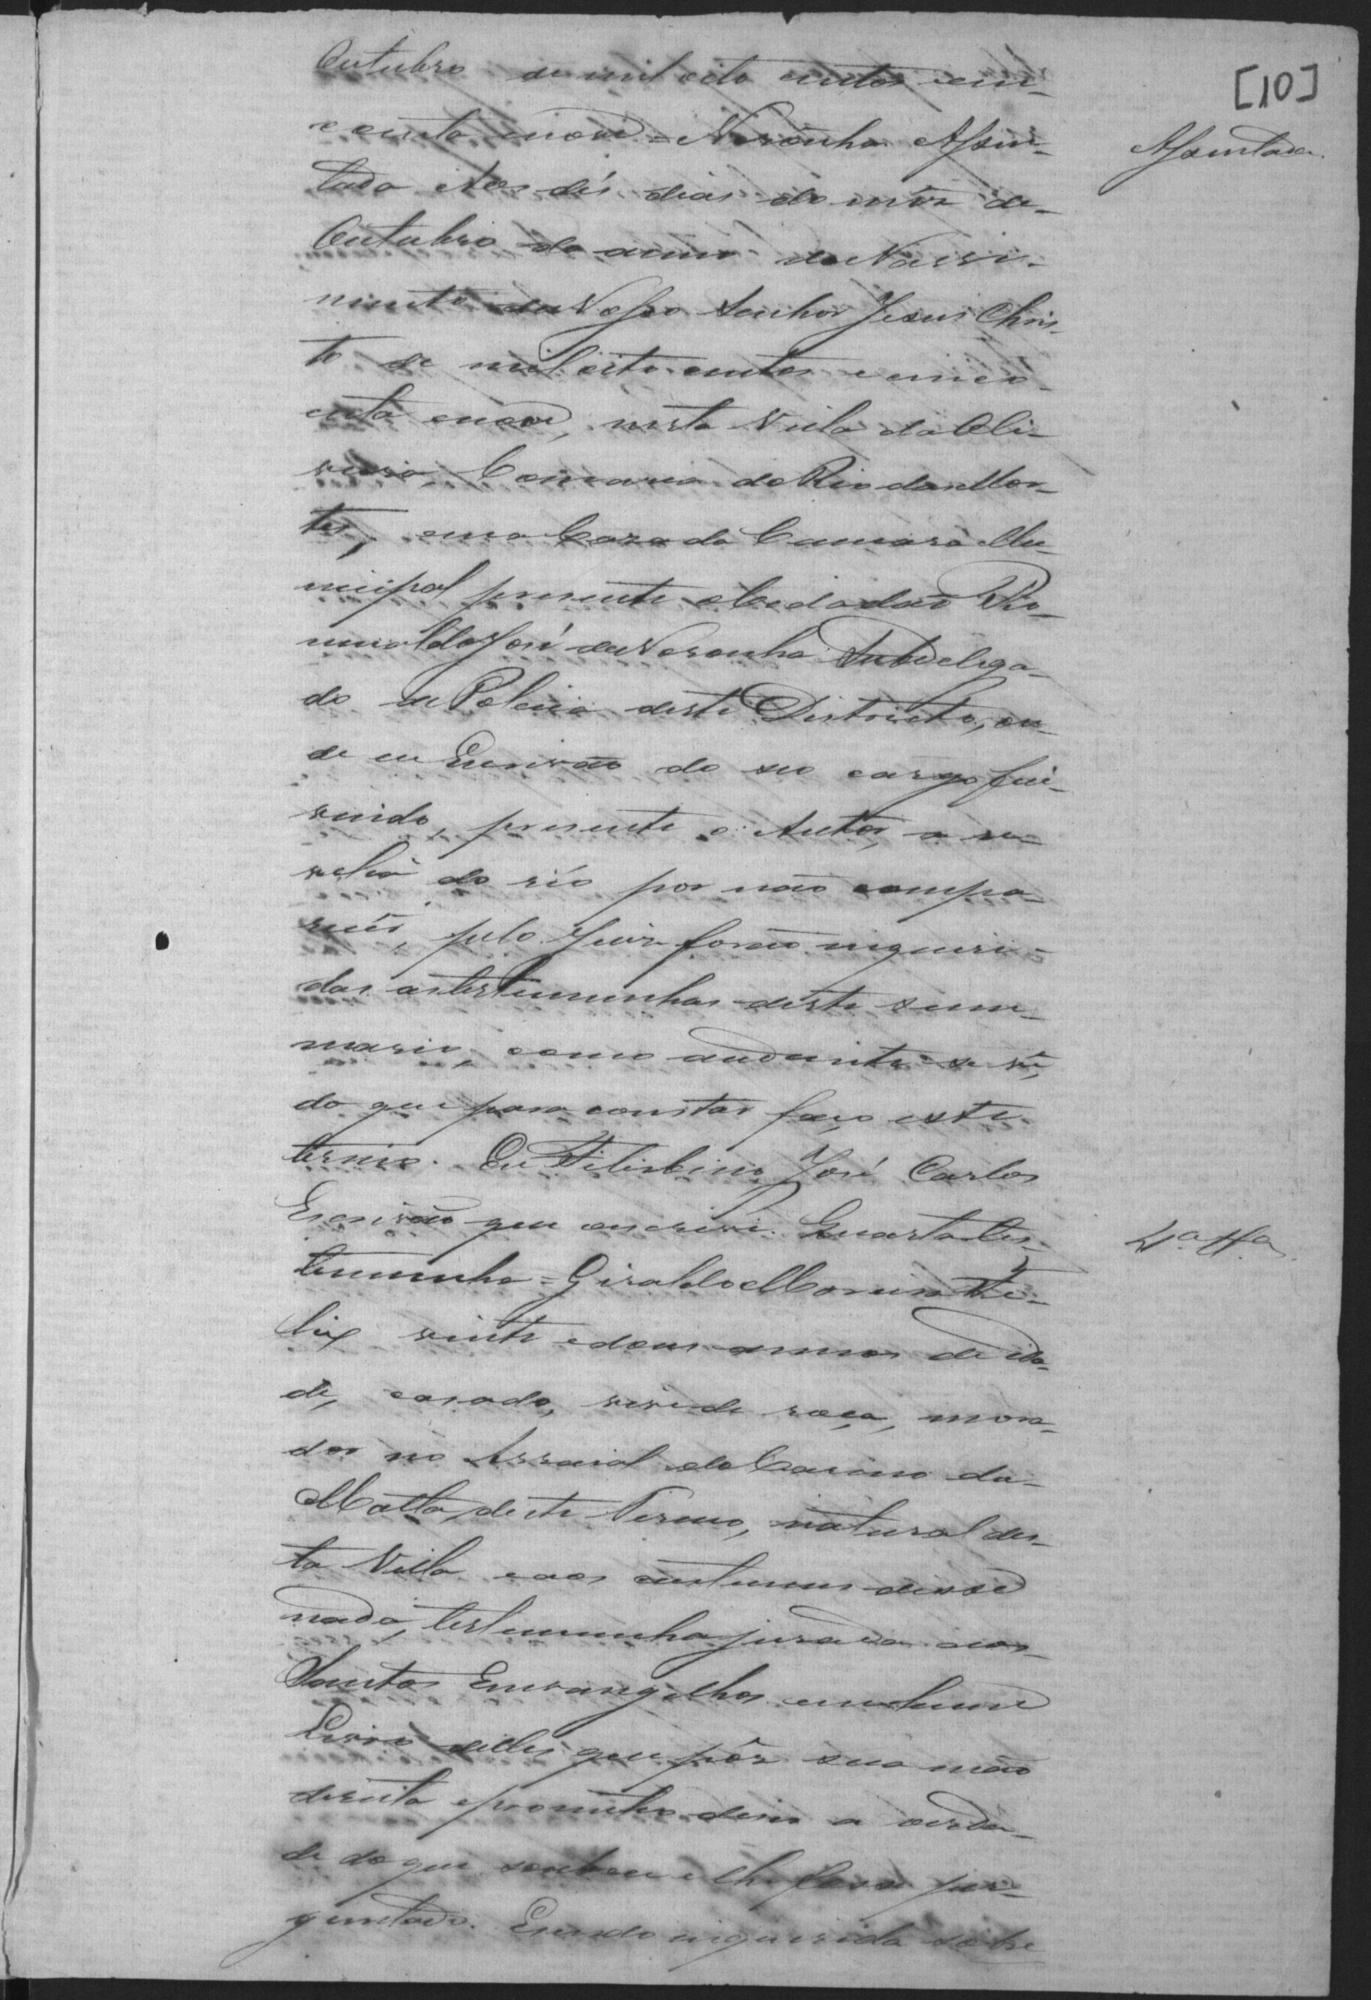 [10]
Outubro de mil oito centos cin-
coenta e nove = Noronha. Assen-
Assentada.
tada Aos dés dias do mês de
Outubro do anno do Nasci-
mento de Nosso Senhor Jesus Chris-
to de mil oito centos e cinco-
enta e nove, nesta Villa da Oli-
veira, Comarca do Rio das Mor-
tes, em a Caza da Camara Mu-
nicipal presente o Cidadão Ro-
mualdo José de Noronha Subdelega-
do de Policia deste Districto, on-
de eu Escrivão do seo cargo fui
vindo, presente o Autor, a re-
velia do réo por não compa-
recer, pelo Juiz forão inqueri-
das as testemunhas deste sum-
mario, como adiante se vê,
do que para constar faço este
termo. Eu Felisbino José Carlos
Escrivão que escrevi. Quarta tes-
4ª Tª
temunha = Giraldo Moreira Fe-
lix vinte e dous annos de ida-
de, casado, vive de roça, mora-
dor no Arraial do Carmo da
Matta deste Termo, natural des-
ta Villa e aos custumes disse
nada, testemunha jurada aos
Santos Envangelhos em hum
Livro delles que pôz sua mão
direita e prometeo dizer a verda-
de do que soubece e lhe fosse per-
guntado. E sendo inquerida sobre